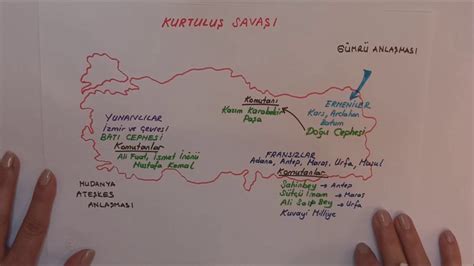 KURTULUŞ SAVAŞI
GÜMRÜ ANLAŞMASI
ERMENİLER
Kars, Ardahan
Batum
Doğu Cephesi
Komutanı
Kasım Karabekir
Paşa
YUNANLILAR
İzmir ve Çevresi
BATI CEPHESİ
Komutanlar
Ali Fuat, İsmet İnönü
Mustafa Kemal
FRANSIZLAR
Adana, Antep, Maraş, Urfa, Musul
Komutanlar
Şahinbey → Antep
Sütçü İmam → Maraş
Ali Saip Bey → Urfa
Kuvayi Milliye
MUDANYA
ATEŞKES
ANLAŞMASI